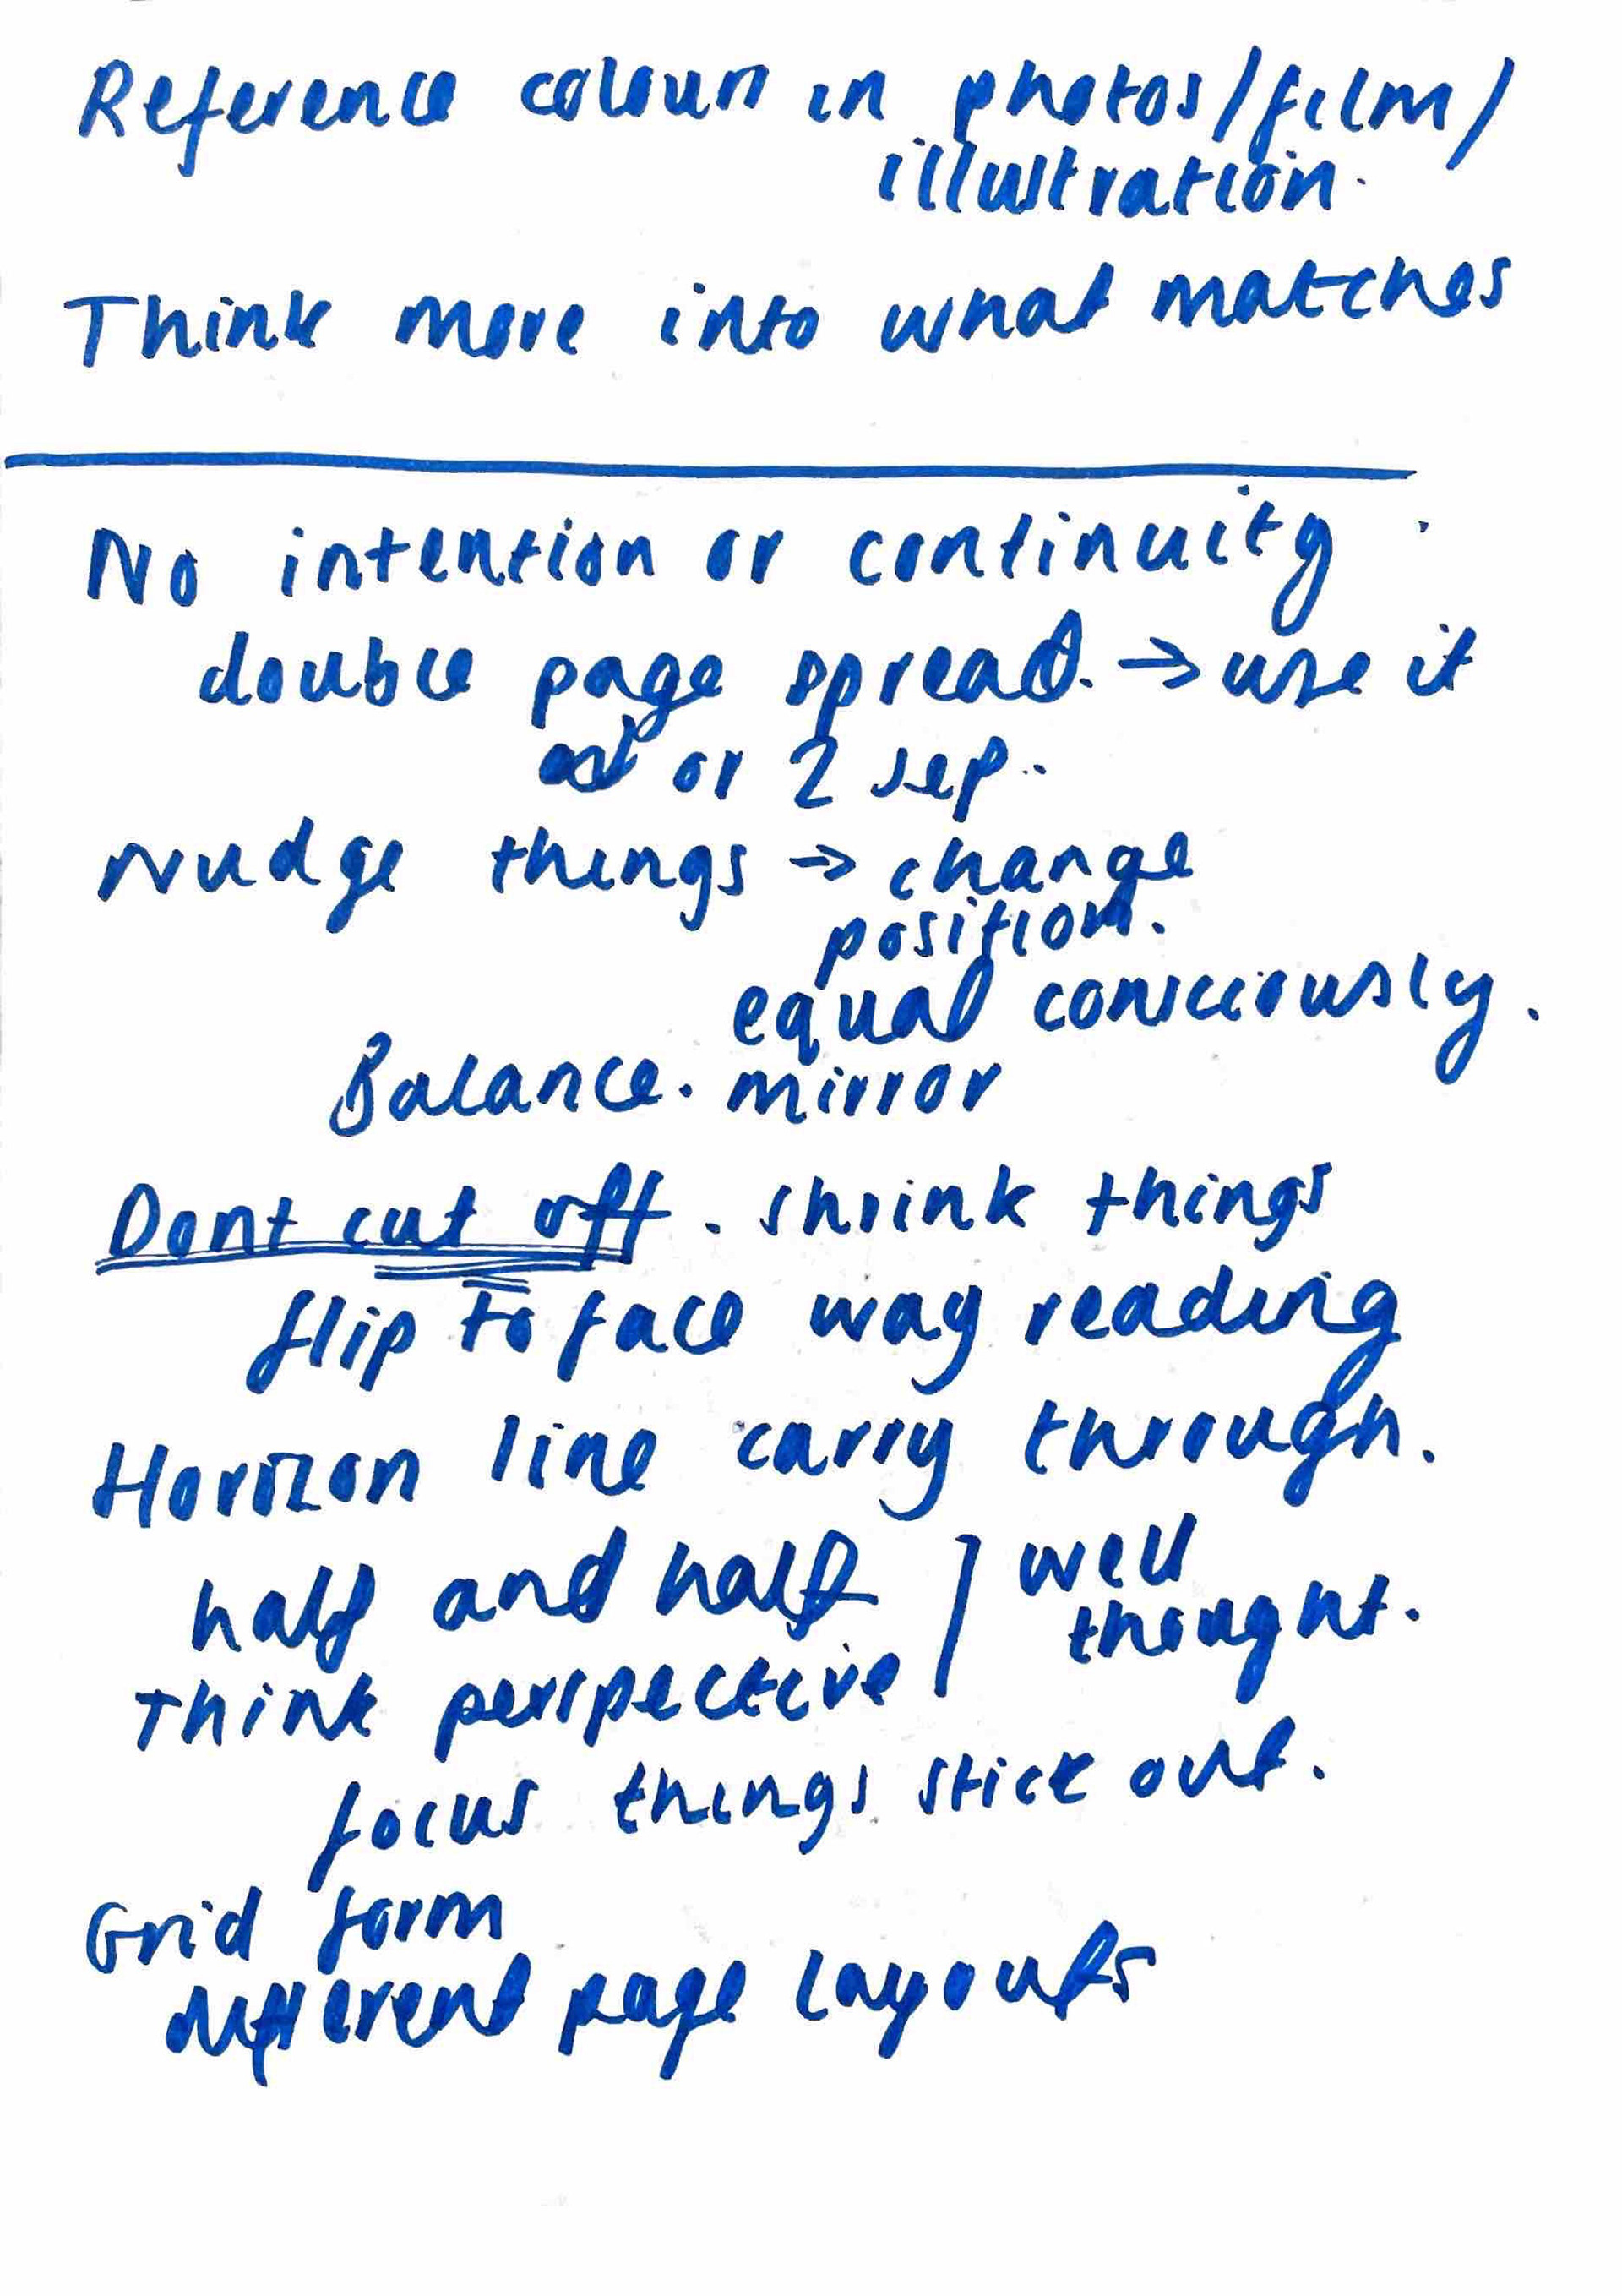 Reference colours in photos/film/
illustration.
Think more into what matches
No intention or continuity
double page spread. → use it
or 2 sep.
Nudge things → change
position.
equal consciously.
Balance. mirror
Dont cut off. shrink things
flip to face way reading
Horizon line carry through.
half and half ] well
thought.
think perspective
focus things stick out.
Grid form
different page layouts